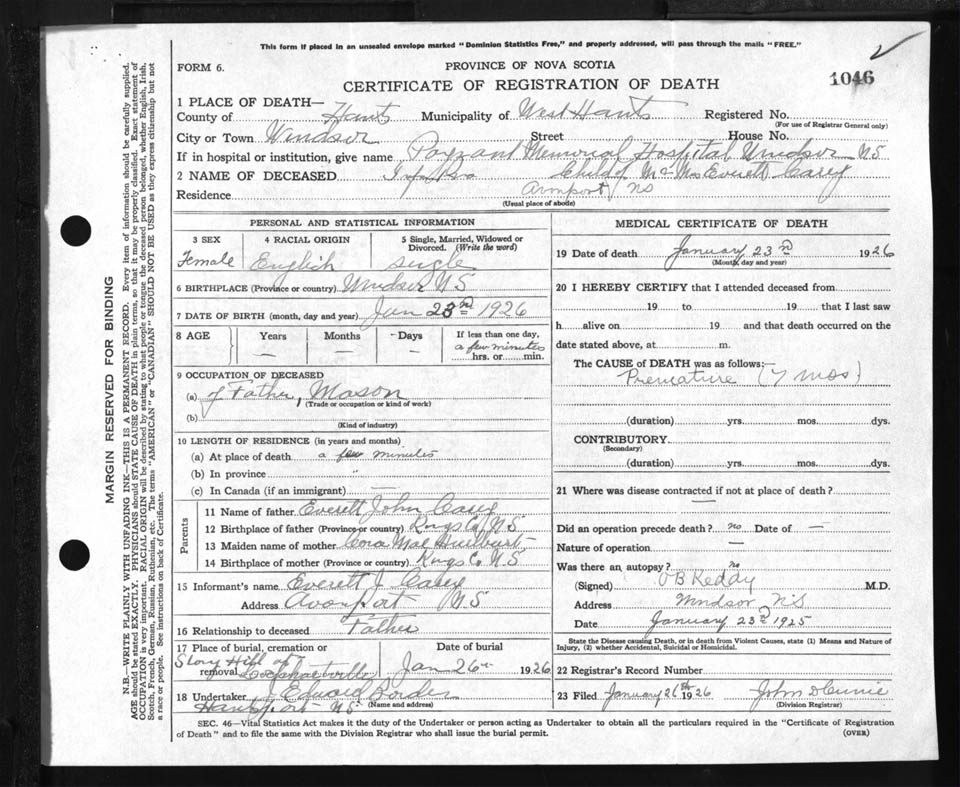 This form if placed in an unsealed envelope marked "Dominion Statistics Free," and properly addressed, will pass through the mails "FREE."
FORM 6.
PROVINCE OF NOVA SCOTIA
CERTIFICATE OF REGISTRATION OF DEATH
1046
1 PLACE OF DEATH—
County of Hants Municipality of West Hants Registered No.
(For use of Registrar General only)
City or Town Windsor Street House No.
If in hospital or institution, give name Payzant Memorial Hospital Windsor NS
2 NAME OF DECEASED Child of Mr Mrs Everett Casey
Residence NS
(Usual place of abode)
PERSONAL AND STATISTICAL INFORMATION
3 SEX 4 RACIAL ORIGIN 5 Single, Married, Widowed or Divorced. (Write the word)
Female English single
6 BIRTHPLACE (Province or country) Windsor NS
7 DATE OF BIRTH (month, day and year) Jan 23rd 1926
8 AGE Years Months Days If less than one day,
— — — a few minutes
hrs. or min.
9 OCCUPATION OF DECEASED
(a) of Father, Mason
(Trade or occupation or kind of work)
(b)
(Kind of industry)
10 LENGTH OF RESIDENCE (in years and months)
(a) At place of death a few minutes
(b) In province "
(c) In Canada (if an immigrant) —
Parents
11 Name of father Everett John Casey
12 Birthplace of father (Province or country) Kings Co, NS
13 Maiden name of mother Cora Mae
14 Birthplace of mother (Province or country) Kings Co. N.S
15 Informant's name Everett J. Casey
Address Avonport NS
16 Relationship to deceased Father
17 Place of burial, cremation or removal Date of burial
Stony Hill Jan 26th 1926
18 Undertaker Edward Border
Hantsport NS. (Name and address)
MEDICAL CERTIFICATE OF DEATH
19 Date of death January 23rd 1926
(Month, day and year)
20 I HEREBY CERTIFY that I attended deceased from
19 to 19 that I last saw
h alive on 19 and that death occurred on the
date stated above, at m.
The CAUSE of DEATH was as follows:—
Premature (7 mos)
(duration) yrs. mos. dys.
CONTRIBUTORY
(Secondary)
(duration) yrs. mos. dys.
21 Where was disease contracted if not at place of death?
Did an operation precede death? no Date of —
Nature of operation —
Was there an autopsy? no
(Signed) OB Keddy M.D.
Address Windsor NS
Date January 23rd 1925
State the Disease causing Death, or in death from Violent Causes, state (1) Means and Nature of Injury, (2) whether Accidental, Suicidal or Homicidal.
22 Registrar's Record Number
23 Filed January 26th 1926 John
(Division Registrar)
SEC. 46—Vital Statistics Act makes it the duty of the Undertaker or person acting as Undertaker to obtain all the particulars required in the "Certificate of Registration
of Death" and to file the same with the Division Registrar who shall issue the burial permit.
(OVER)
MARGIN RESERVED FOR BINDING
N.B.—WRITE PLAINLY WITH UNFADING INK—THIS IS A PERMANENT RECORD. Every item of information should be carefully supplied.
AGE should be stated EXACTLY. PHYSICIANS should STATE CAUSE OF DEATH in plain terms, so that it may be properly classified. Exact statement of
OCCUPATION is very important. RACIAL ORIGIN will be described by stating to what people or tongue the deceased person belonged, whether English, Irish,
Scotch, French, German, Russian, Ruthenian, etc. The terms "AMERICAN" or "CANADIAN" SHOULD NOT BE USED as they express citizenship but not
a race or people. See instructions on back of Certificate.